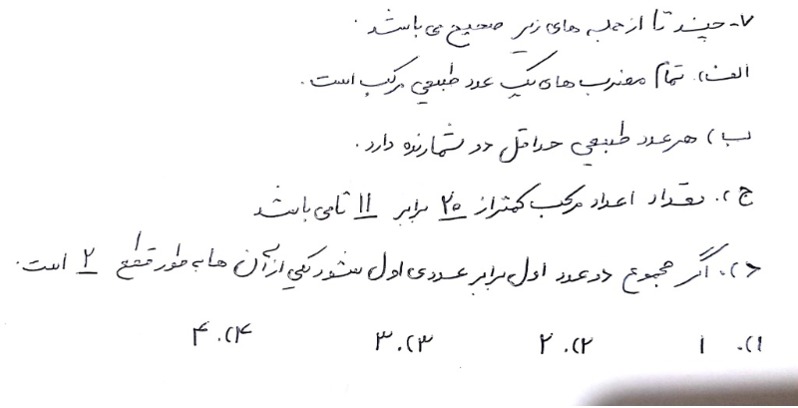 ۷- چند تا از جمله های زیر صحیح می باشد.
الف). تمام مضرب های یک عدد طبیعی مرکب است.
ب) هر عدد طبیعی حداقل دو شمارنده دارد.
ج). تعداد اعداد مرکب کمتر از ۲۰ برابر ۱۱ تا می باشد
د). اگر مجموع دو عدد اول برابر عددی اول شود یکی از آن ها به طور قطع ۲ است.
۱). ۱ ۲). ۲ ۳). ۳ ۴). ۴